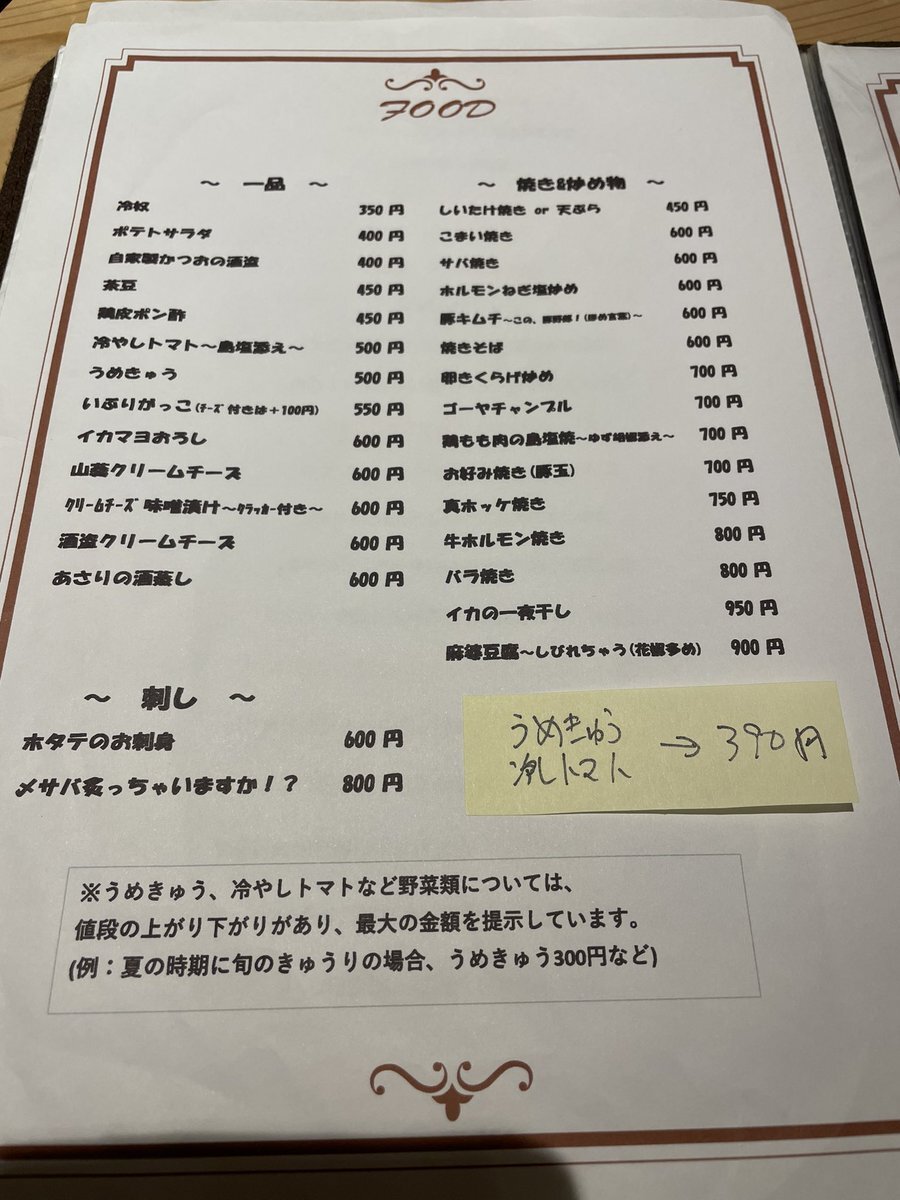 FOOD
～ 一品 ～
冷奴 350円
ポテトサラダ 400円
自家製かつおの酒盗 400円
茶豆 450円
鶏皮ポン酢 450円
冷やしトマト～島塩添え～ 500円
うめきゅう 500円
いぶりがっこ(ﾁｰｽﾞ付きは＋100円) 550円
イカマヨおろし 600円
山葵クリームチーズ 600円
ｸﾘｰﾑﾁｰｽﾞ 味噌漬け～ｸﾗｯｶｰ付き～ 600円
酒盗クリームチーズ 600円
あさりの酒蒸し 600円
～ 刺し ～
ホタテのお刺身 600円
メサバ炙っちゃいますか！？ 800円
～ 焼き&炒め物 ～
しいたけ焼き or 天ぷら 450円
こまい焼き 600円
サバ焼き 600円
ホルモンねぎ塩炒め 600円
豚キムチ～この、豚野郎！(褒め言葉)～ 600円
焼きそば 600円
卵きくらげ炒め 700円
ゴーヤチャンプル 700円
鶏もも肉の島塩焼～ゆず胡椒添え～ 700円
お好み焼き(豚玉) 700円
真ホッケ焼き 750円
牛ホルモン焼き 800円
バラ焼き 800円
イカの一夜干し 950円
麻婆豆腐～しびれちゃう(花椒多め) 900円
うめきゅう
冷しトマト → 390円
※うめきゅう、冷やしトマトなど野菜類については、
値段の上がり下がりがあり、最大の金額を提示しています。
(例：夏の時期に旬のきゅうりの場合、うめきゅう300円など)